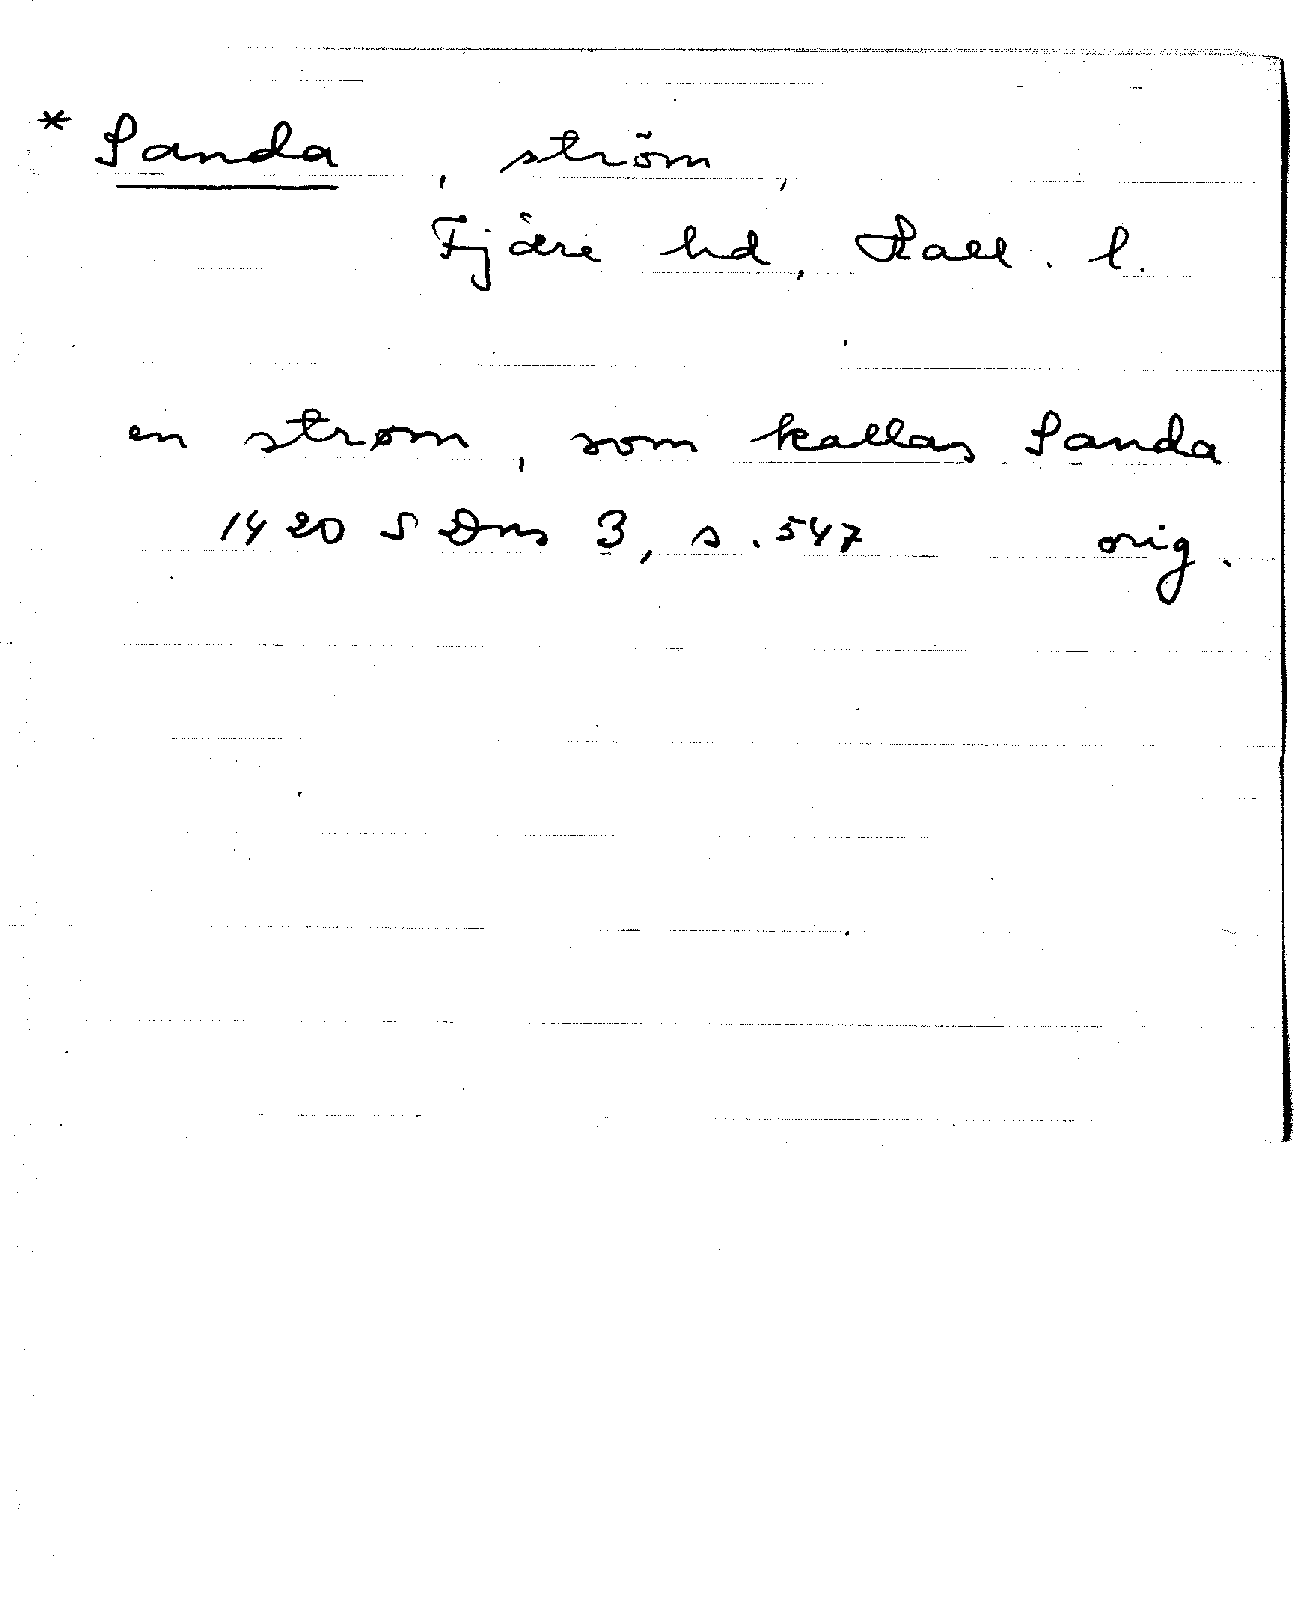 * Sanda, ström,
Fjäre hd, Hall. l.
en strøm, som kallas Sanda
1420 SDns 3, s. 547 orig.